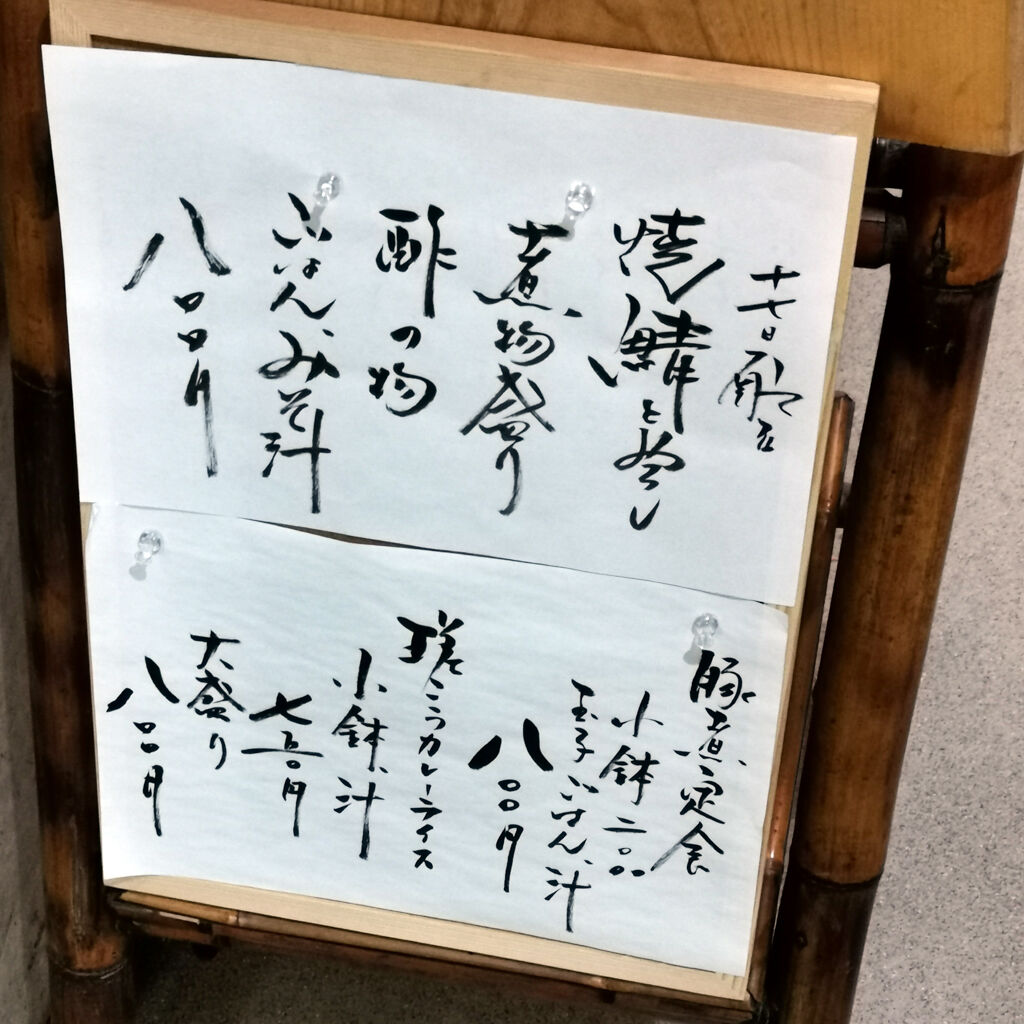 十七日
焼鯖と蒸し
煮物盛り
酢の物
ごはん、みそ汁
八〇〇円
豚煮定食
小鉢二〇〇
玉子ごはん、汁
八〇〇円
カレーライス
小鉢、汁
七五〇円
大盛り
八〇〇円